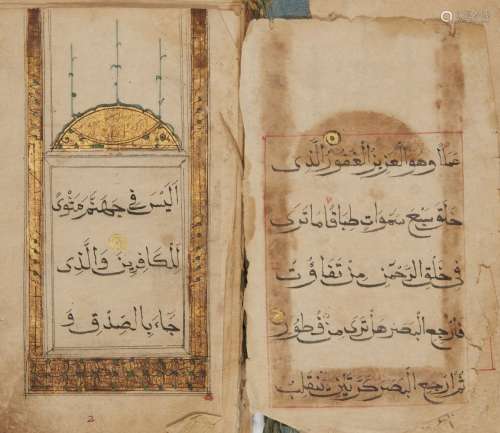 عملا وهو العزيز الغفور الذى
خلق سبع سموات طباقا ما ترى
فى خلق الرحمن من تفاوت
فارجع البصر هل ترى من فطور
ثم ارجع البصر كرتين ينقلب
اليس فى جهنم مثوى
للكافرين والذى
جاء بالصدق و
2